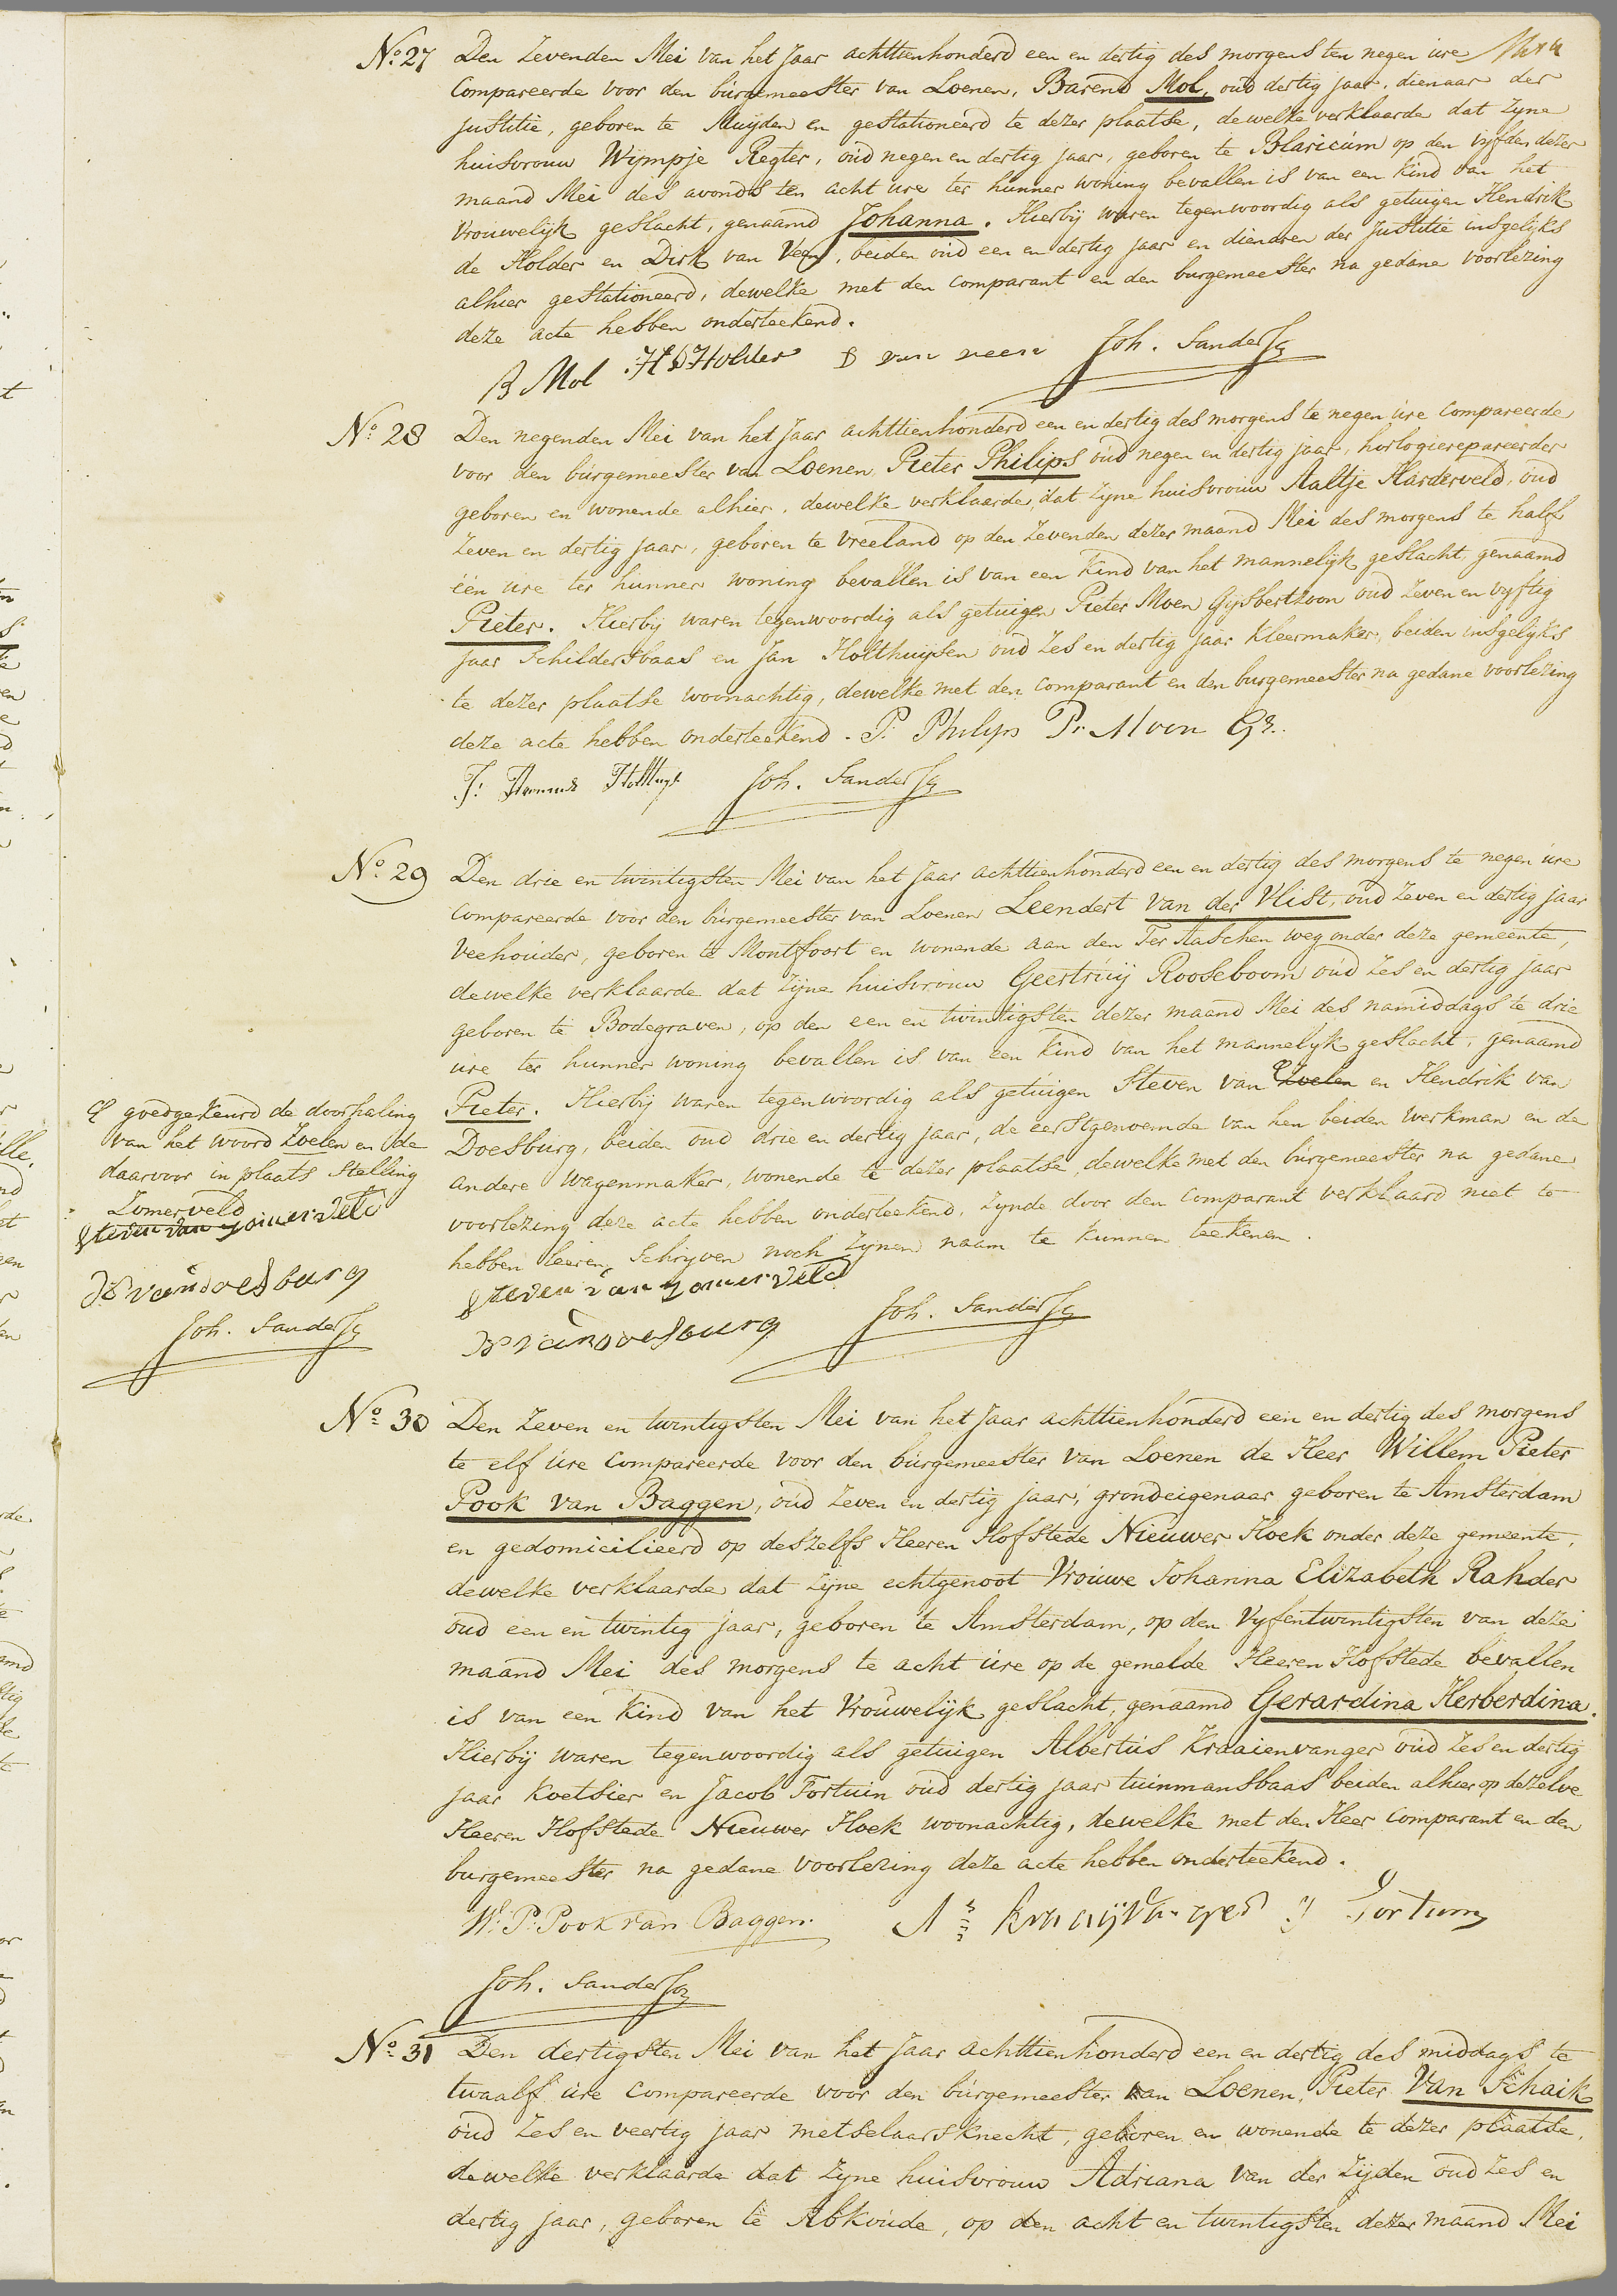 No. 27 Den Zevenden Mei van het Jaar achttienhonderd een en dertig des morgens ten negen ure
Compareerde voor den burgemeester van Loenen, Barend Mol, oud dertig jaar, dienaar der
justitie, geboren te Muyden en gestationeerd te dezer plaatse, dewelke verklaarde dat zyne
huisvrouw Wijmpje Regter, oud negen en dertig jaar, geboren te Blaricum op den vyfden dezer
maand Mei des avonds ten acht ure ter hunner woning bevallen is van een kind van het
Vrouwelijk geslacht, genaamd Johanna. Hierbij waren tegenwoordig als getuigen Hendrik
de Holder en Dirk van Veen, beiden oud een en dertig jaar en dienaren der Justitie insgelijks
alhier gestationeerd, dewelke met den comparant en den burgemeester na gedane voorlezing
deze acte hebben onderteekend.
B Mol H D Holder D van veen Joh. Sanderse
No. 28 Den negenden Mei van het Jaar achttienhonderd een en dertig des morgens te negen ure compareerde
voor den burgemeester van Loenen, Pieter Philips oud negen en dertig jaar, horlogierepareerder
geboren en wonende alhier, dewelke verklaarde, dat zyne huisvrouw Aaltje Harderveld, oud
zeven en dertig jaar, geboren te Vreeland op den Zevenden dezer maand Mei des morgens te half
één ure ter hunner woning bevallen is van een kind van het mannelyk geslacht, genaamd
Pieter. Hierbij waren tegenwoordig als getuigen Pieter Moen Gijsbertzoon oud zeven en vyftig
jaar Schildersbaas en Jan Holthuijsen oud zes en dertig jaar Kleermaker, beiden insgelijks
te dezer plaatse woonachtig, dewelke met den comparant en den burgemeester na gedane voorlezing
deze acte hebben onderteekend. P. Philips Pr. Moen Gz.
Joh. Sanderse
No. 29 Den drie en twintigsten Mei van het Jaar achttienhonderd een en dertig des morgens te negen ure
compareerde voor den burgemeester van Loenen Leendert van der Vlist, oud zeven en dertig jaar
Veehouder, geboren te Montfoort en wonende aan den Ter Aaschen weg onder deze gemeente,
dewelke verklaarde dat zijne huisvrouw Geertruij Rooseboom oud zes en dertig jaar
geboren te Bodegraven, op den een en twintigsten dezer maand Mei des namiddags te drie
ure ter hunner woning bevallen is van een kind van het mannelyk geslacht, genaamd
Pieter. Hierbij waren tegenwoordig als getuigen Steven van Zoelen en Hendrik van
Doesburg, beiden oud drie en dertig jaar, de eerstgenoemde van hen beiden werkman en de
andere wagenmaker, wonende te dezer plaatse, dewelke met den burgemeester na gedane
voorlezing deze acte hebben onderteekend, zynde door den comparant verklaard niet te
hebben leeren schryven noch zynen naam te kunnen teekenen.
Steven van zomerveld
H van Doesburg Joh. Sanderse
goedgekeurd de doorhaling
van het woord Zoelen en de
daarvoor in plaats stelling
Zomerveld
Steven van zomerveld
H van Doesburg
Joh. Sanderse
No. 30 Den Zeven en twintigsten Mei van het Jaar achttienhonderd een en dertig des morgens
te elf ure compareerde voor den burgemeester van Loenen de Heer Willem Pieter
Pook van Baggen, oud zeven en dertig jaar, grondeigenaar geboren te Amsterdam
en gedomicilieerd op deszelfs Heeren Hofstede Nieuwer Hoek onder deze gemeente,
dewelke verklaarde dat zijne echtgenoot Vrouwe Johanna Elizabeth Rahder
oud een en twintig jaar, geboren te Amsterdam, op den Vyfentwintigsten van deze
maand Mei des morgens te acht ure op de gemelde Heeren Hofstede bevallen
is van een kind van het Vrouwelijk geslacht, genaamd Gerardina Herberdina.
Hierbij waren tegenwoordig als getuigen Albertus Kraaienvanger oud zes en dertig
jaar Koetsier en Jacob Fortuin oud dertig jaar tuinmansbaas beiden alhier op dezelve
Heeren Hofstede Nieuwer Hoek woonachtig, dewelke met den Heer comparant en den
burgemeester na gedane voorlezing deze acte hebben onderteekend.
W. P. Pook van Baggen. A Kraaijvanger J Fortuin
Joh. Sanderse
No. 31 Den dertigsten Mei van het Jaar achttienhonderd een en dertig des middags te
twaalf ure compareerde voor den burgemeester van Loenen, Pieter Van Schaik
oud zes en veertig jaar metselaarsknecht, geboren en wonende te dezer plaatse,
dewelke verklaarde dat zyne huisvrouw Adriana van der Zijden oud zes en
dertig jaar, geboren te Abkoude, op den acht en twintigsten dezer maand Mei